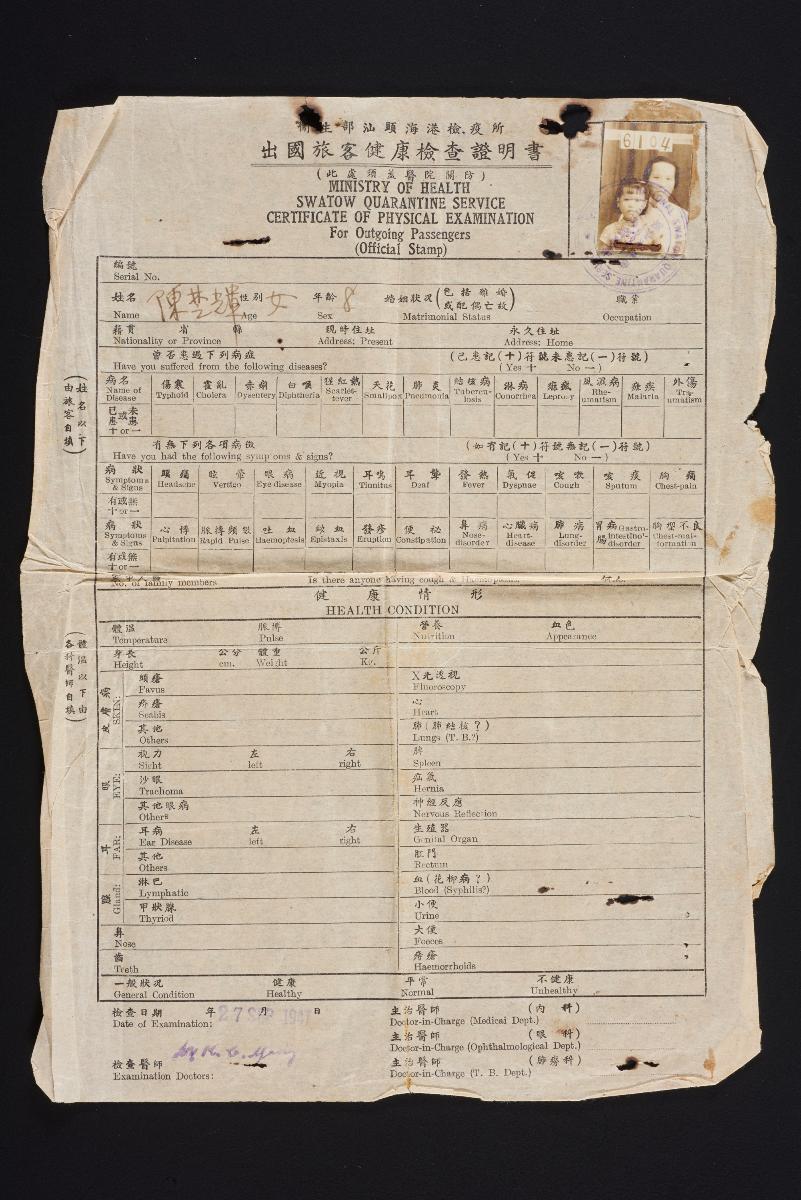 衛生部汕頭海港檢疫所
出國旅客健康檢查證明書
(此處須蓋醫院關防)
MINISTRY OF HEALTH
SWATOW QUARANTINE SERVICE
CERTIFICATE OF PHYSICAL EXAMINATION
For Outgoing Passengers
(Official Stamp)
6104
編號
Serial No.
姓名 陳楚輝 性別 女 年齡 8 婚姻狀況(包括離婚或配偶亡故) 職業
Name Age Sex Matrimonial Status Occupation
籍貫 省 縣 現時住址 永久住址
Nationality or Province Address: Present Address: Home
曾否患過下列病症 (已患記(十)符號未患記(一)符號)
Have you suffered from the following diseases? (Yes 十 No 一)
病名 傷寒 霍亂 赤痢 白喉 猩紅熱 天花 肺炎 結核病 淋病 痲瘋 風濕病 瘧疾 外傷
Name of Disease Typhoid Cholera Dysentery Diphtheria Scarlet-fever Smallpox Pneumonia Tuberculosis Gonorrhea Leprosy Rheumatism Malaria Traumatism
已患或未患
十 or 一
有無下列各項病徵 (如有記(十)符號無記(一)符號)
Have you had the following symptoms & signs? (Yes 十 No 一)
病狀 頭痛 眩暈 眼病 近視 耳鳴 耳聾 發熱 氣促 咳嗽 咳痰 胸痛
Symptoms & Signs Headache Vertigo Eye disease Myopia Tinnitus Deaf Fever Dyspnae Cough Sputum Chest-pain
有或無
十 or 一
病狀 心搏 脈搏頻數 吐血 衄血 發疹 便祕 鼻病 心臟病 肺病 胃腸病 胸型不良
Symptoms & Signs Palpitation Rapid Pulse Haemoptesis Epistaxis Eruption Constipation Nose-disorder Heart-disease Lung-disorder Gastro-intestino'-disorder Chest-mal-formation
有或無
十 or 一
No. of family members Is there anyone having cough & Haemoptesis
健康情形
HEALTH CONDITION
體溫 脈搏 營養 血色
Temperature Pulse Nutrition Appearance
身長 公分 體重 公斤
Height cm. Weight Kg.
X光透視
Fluoroscopy
皮膚病 SKIN:
頭瘡
Favus
疥瘡
Scabis
其他
Others
心
Heart
肺(肺結核?)
Lungs (T. B.?)
眼 EYE:
視力 左 右
Sight left right
沙眼
Trachoma
其他眼病
Others
脾
Spleen
疝氣
Hernia
神經反應
Nervous Reflection
耳 EAR:
耳病 左 右
Ear Disease left right
其他
Others
生殖器
Genital Organ
肛門
Rectum
腺 Gland:
淋巴
Lymphatic
甲狀腺
Thyriod
血(花柳病?)
Blood (Syphilis?)
小便
Urine
鼻
Nose
大便
Foeces
齒
Teeth
痔瘡
Haemorrhoids
一般狀況 健康 平常 不健康
General Condition Healthy Normal Unhealthy
檢查日期 年 月 日
27 SEP 1947
Date of Examination:
檢查醫師
Examination Doctors:
主治醫師 (內科)
Doctor-in-Charge (Medical Dept.)
主治醫師 (眼科)
Doctor-in-Charge (Ophthalmological Dept.)
主治醫師 (肺癆科)
Doctor-in-Charge (T. B. Dept.)
(姓名以下由旅客自填)
(體溫以下由各科醫師自填)